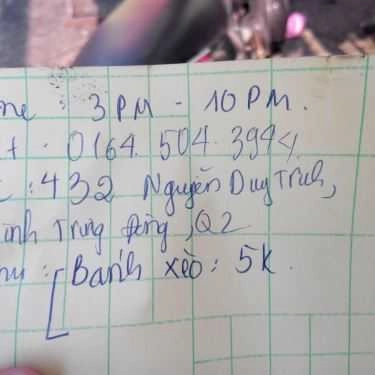 me : 3 PM - 10 PM.
t . 0164. 504. 3994.
: 432 Nguyễn Duy Trinh,
ình Trưng Đông, Q2
nu : Bánh xèo : 5K.